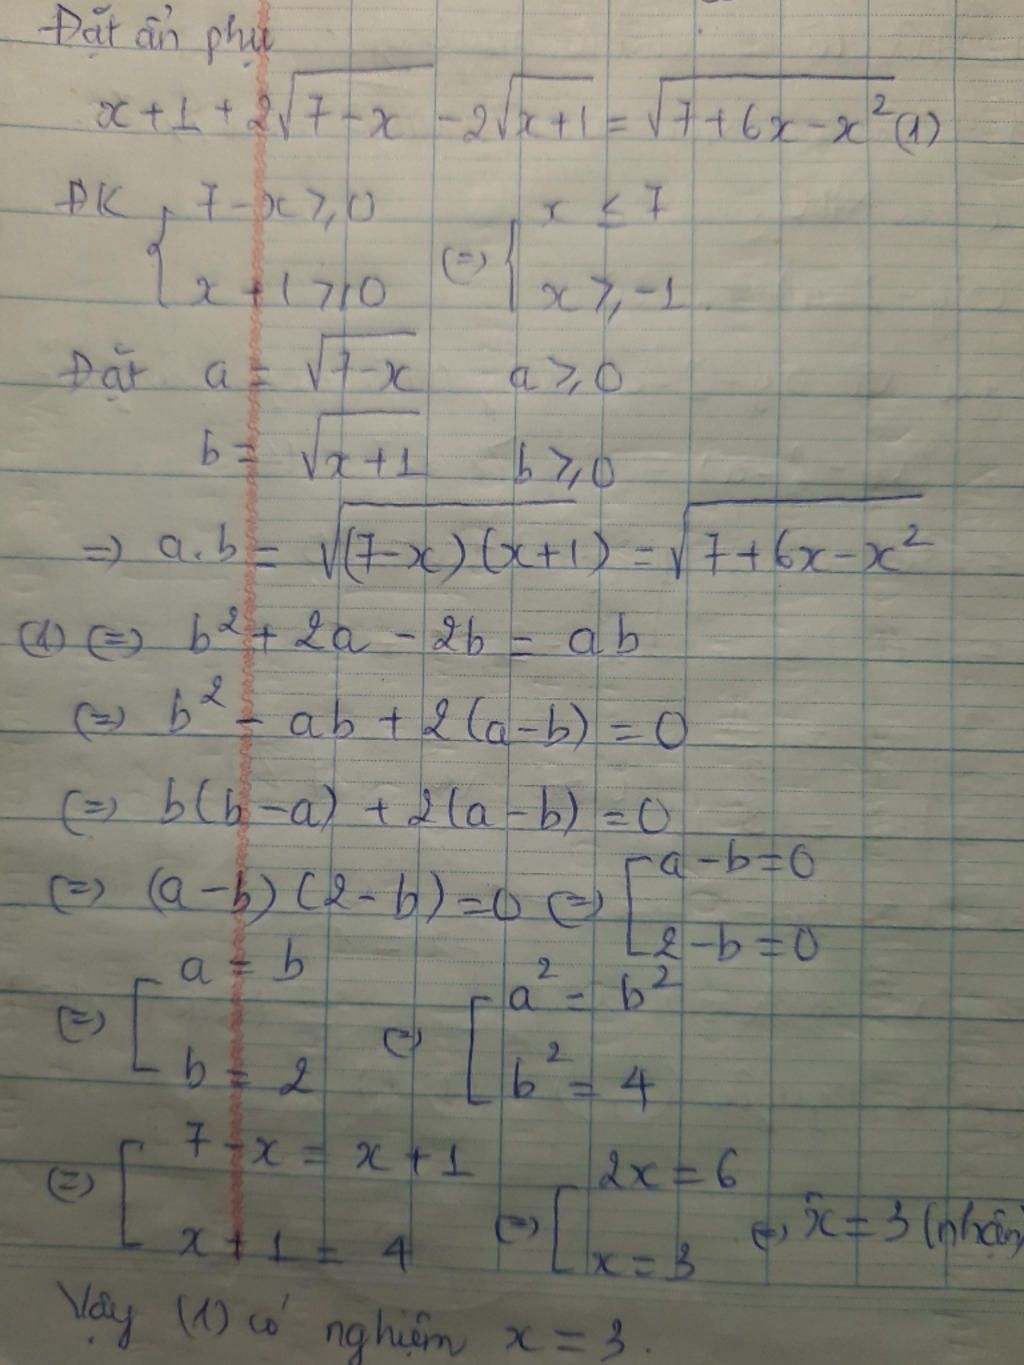 Đặt ẩn phụ
x + 1 + 2√(7 - x) - 2√(x + 1) = √(7 + 6x - x²) (1)
ĐK { 7 - x ≥ 0 (=) { x ≤ 7
x + 1 ≥ 0 x ≥ -1.
Đặt a = √(7 - x) a ≥ 0
b = √(x + 1) b ≥ 0
=> a.b = √((7-x)(x+1)) = √(7 + 6x - x²)
(1) (=) b² + 2a - 2b = ab
(=) b² - ab + 2(a - b) = 0
(=) b(b - a) + 2(a - b) = 0
(=) (a - b)(2 - b) = 0 (=) [ a - b = 0
2 - b = 0
(=) [ a = b (=) [ a² = b²
b = 2 b² = 4
(=) [ 7 - x = x + 1 (=) [ 2x = 6 (=) x = 3 (nhận)
x + 1 = 4 x = 3
Vậy (1) có nghiệm x = 3.